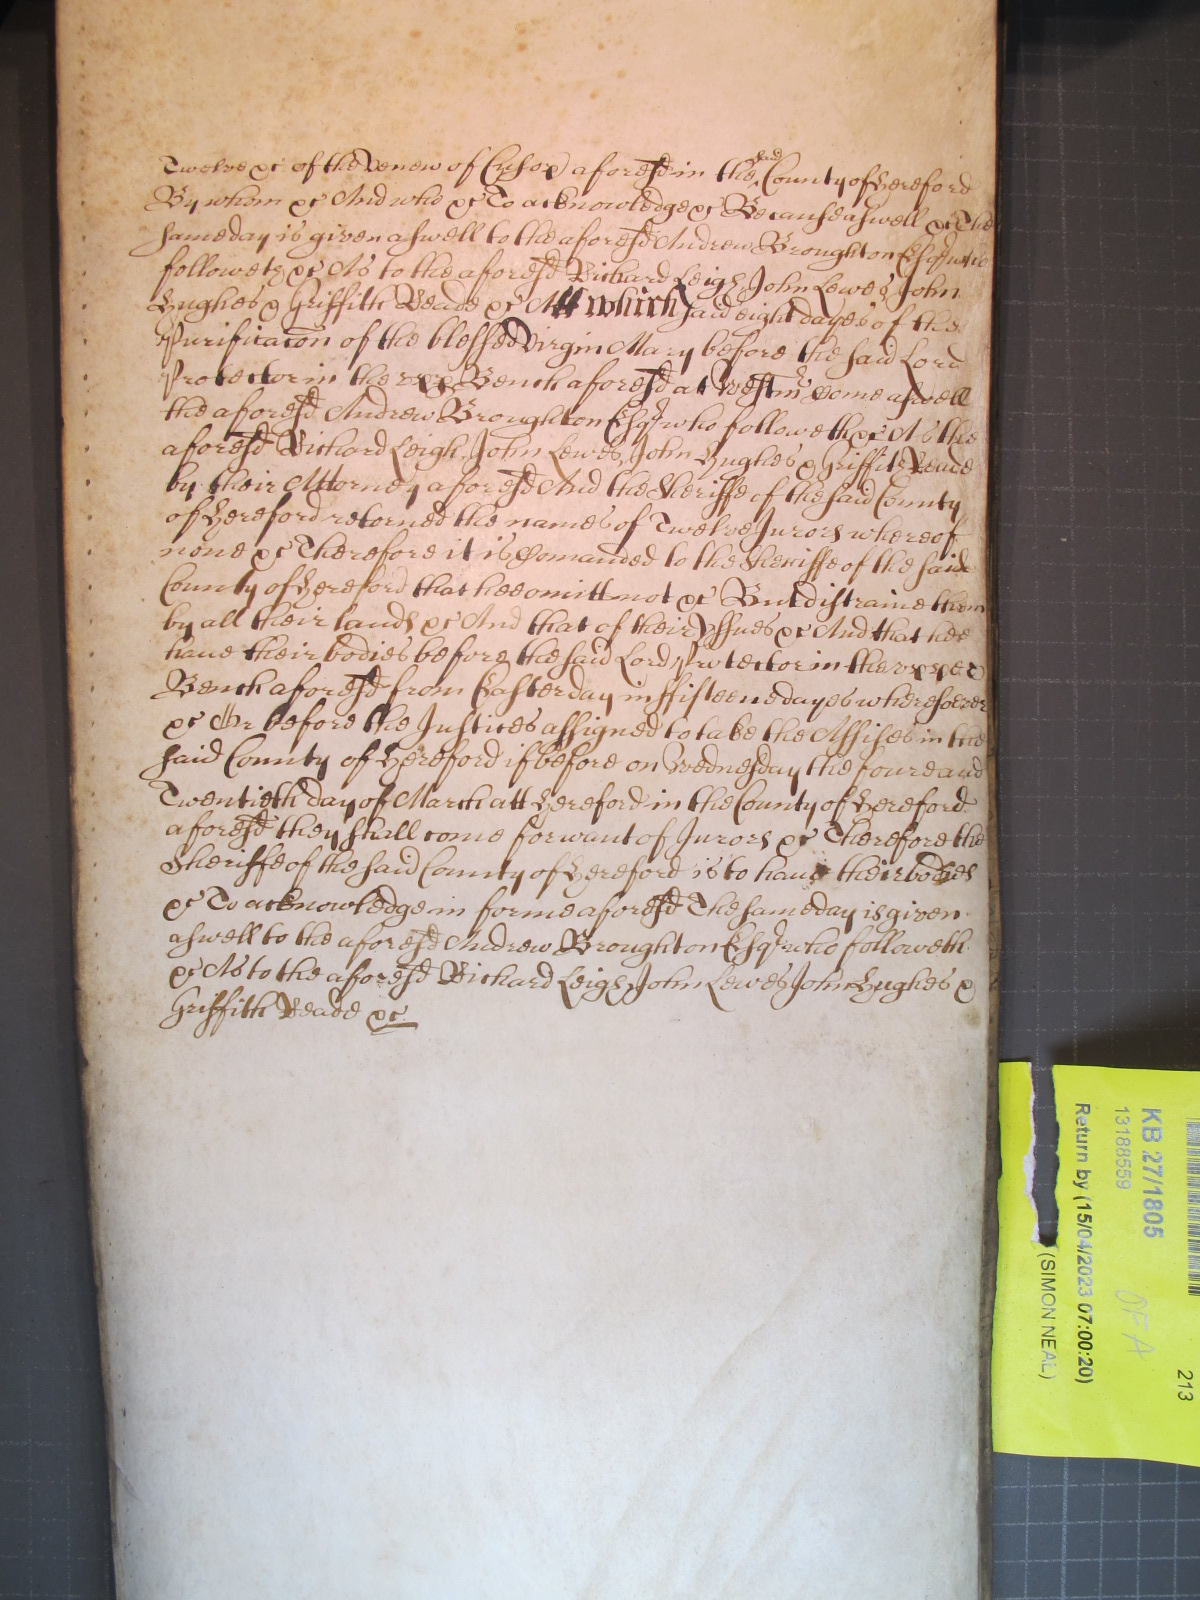 Twelve &c of the Venew of aforesd in the said County of Hereford
By whom &c And who &c To acknowledge &c Because aswell &c The
same day is given aswell to the aforesd Andrew Broughton Esqr who
followeth &c As to the aforesd Richard Leigh, John Lewes, John
Hughes & Griffith Reade &c Att which said eight dayes of the
Purificacon of the blessed Virgin Mary before the said Lord
Protector in the upp Bench aforesd at Westmr Come aswell
the aforesd Andrew Broughton Esqr who followeth &c As the
aforesd Richard Leigh, John Lewes, John Hughes & Griffith Reade
by their Attorney aforesd And the Sheriffe of the said County
of Hereford retorned the names of Twelve Jurors whereof
none &c Therefore it is Comanded to the Sheriffe of the said
County of Hereford that hee omitt not &c But distraine them
by all their lands &c And that of their Yssues &c And that hee
haue their bodies before the said Lord Protector in the upper
Bench aforesd from Easter day in ffifteene dayes wheresoever
&c Or before the Justices assigned to take the Assises in the
said County of Hereford if before on Wednesday the foure and
Twentieth day of March att Hereford in the County of Hereford
aforesd they shall come for want of Jurors &c Therefore the
Sheriffe of the said County of Hereford is to haue their bodies
&c To acknowledge in forme aforesd The same day is given
aswell to the aforesd Andrew Broughton Esqr who followeth
&c As to the aforesd Richard Leigh, John Lewes John Hughes &
Griffith Reade &c
213
KB 27/1805
13188559
Return by (15/04/2023 07:00:20)
(SIMON NEAL)